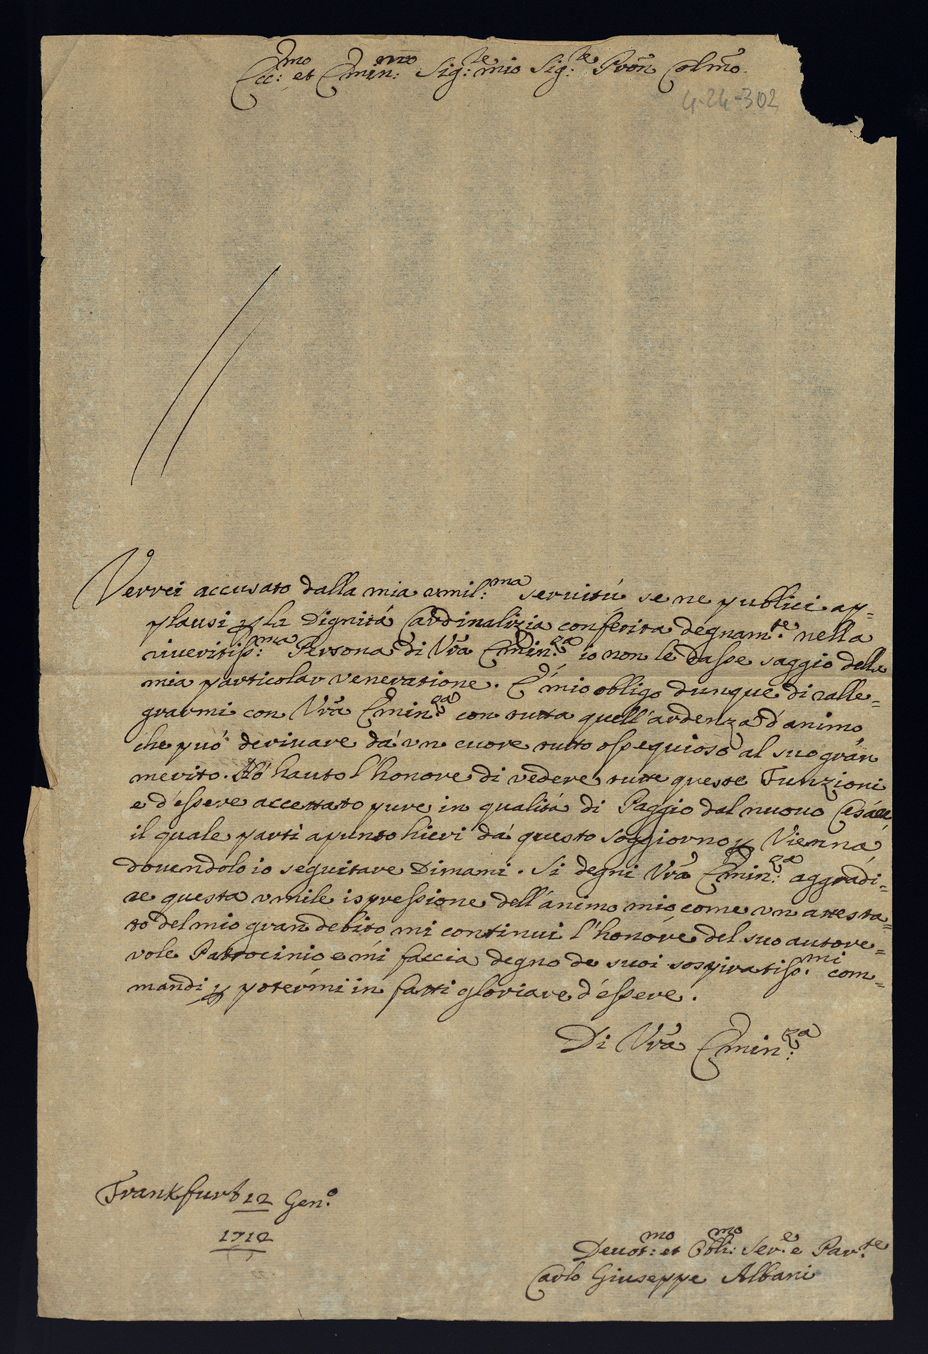 Ecc:mo et Emin:mo Sig:re mio Sig:re Pron Colmo
4-24-302
Verrei accusato dalla mia umil:ma servitù se ne publici ap=
plausi p la Dignitá Cardinalizia conferita degnamte nella
riveritiss:ma Persona di Vra Emin:za io non le dasse saggio della
mia particolar veneratione. É mio obligo dunque di ralle=
grarmi con Vra Emin:za con tutta quell'ardenza d'animo
che puó derivare dá un cuore tutto ossequioso al suo gran
merito. Hó hauto l'honore di vedere tutte queste Funzioni
e d'essere accettato pure in qualitá di Paggio dal nuovo Cesáre
il quale partì apunto hieri dá questo soggiorno p Vienna
dovendolo io seguitare Dimani. Si degni Vra Emin:za aggradi=
re questa umile ispressione dell'animo mio come un attesta=
to del mio gran debito mi continui l'honore del suo autore=
vole Patrocinio e mi faccia degno de suoi sospiratiss:mi com=
mandi p potermi in fatti gloriare d'essere.
Di Vra Emin:za
Frankfurt 12 Gen:o
1712
Devot:mo et Obli:mo Ser.e e Par.te
Carlo Giuseppe Albani